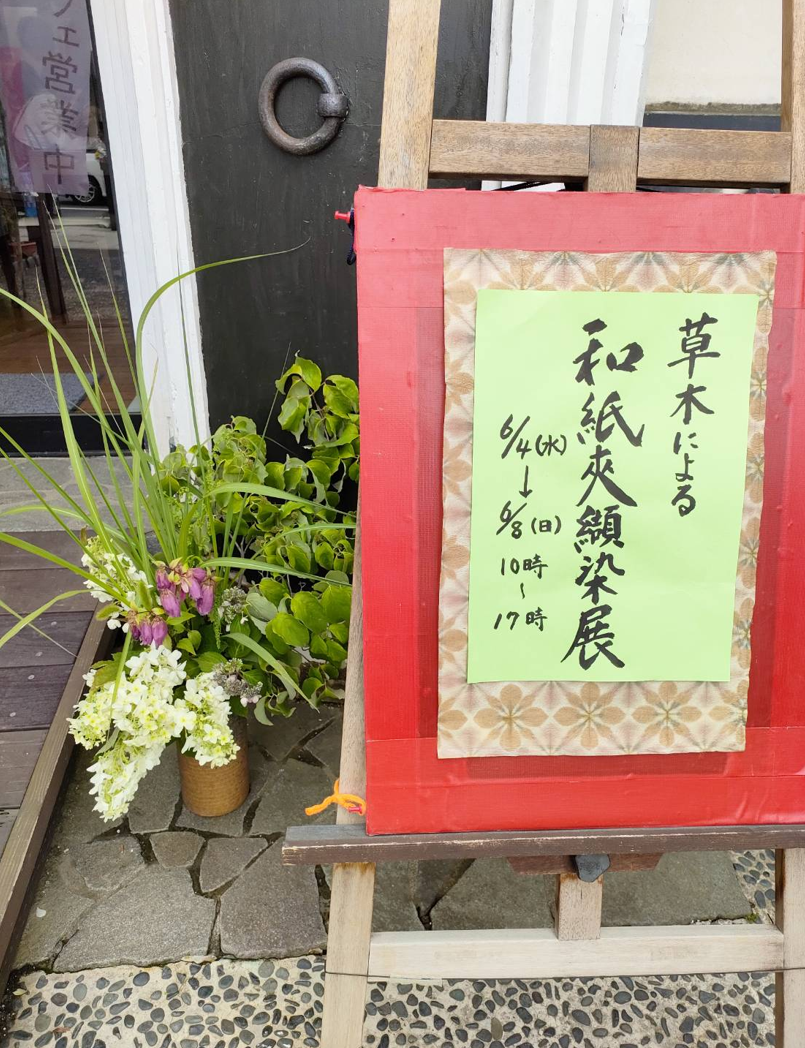 草木による
和紙夾纈染展
6/4(水)
↓
6/8(日)
10時
~
17時
フェ営業中